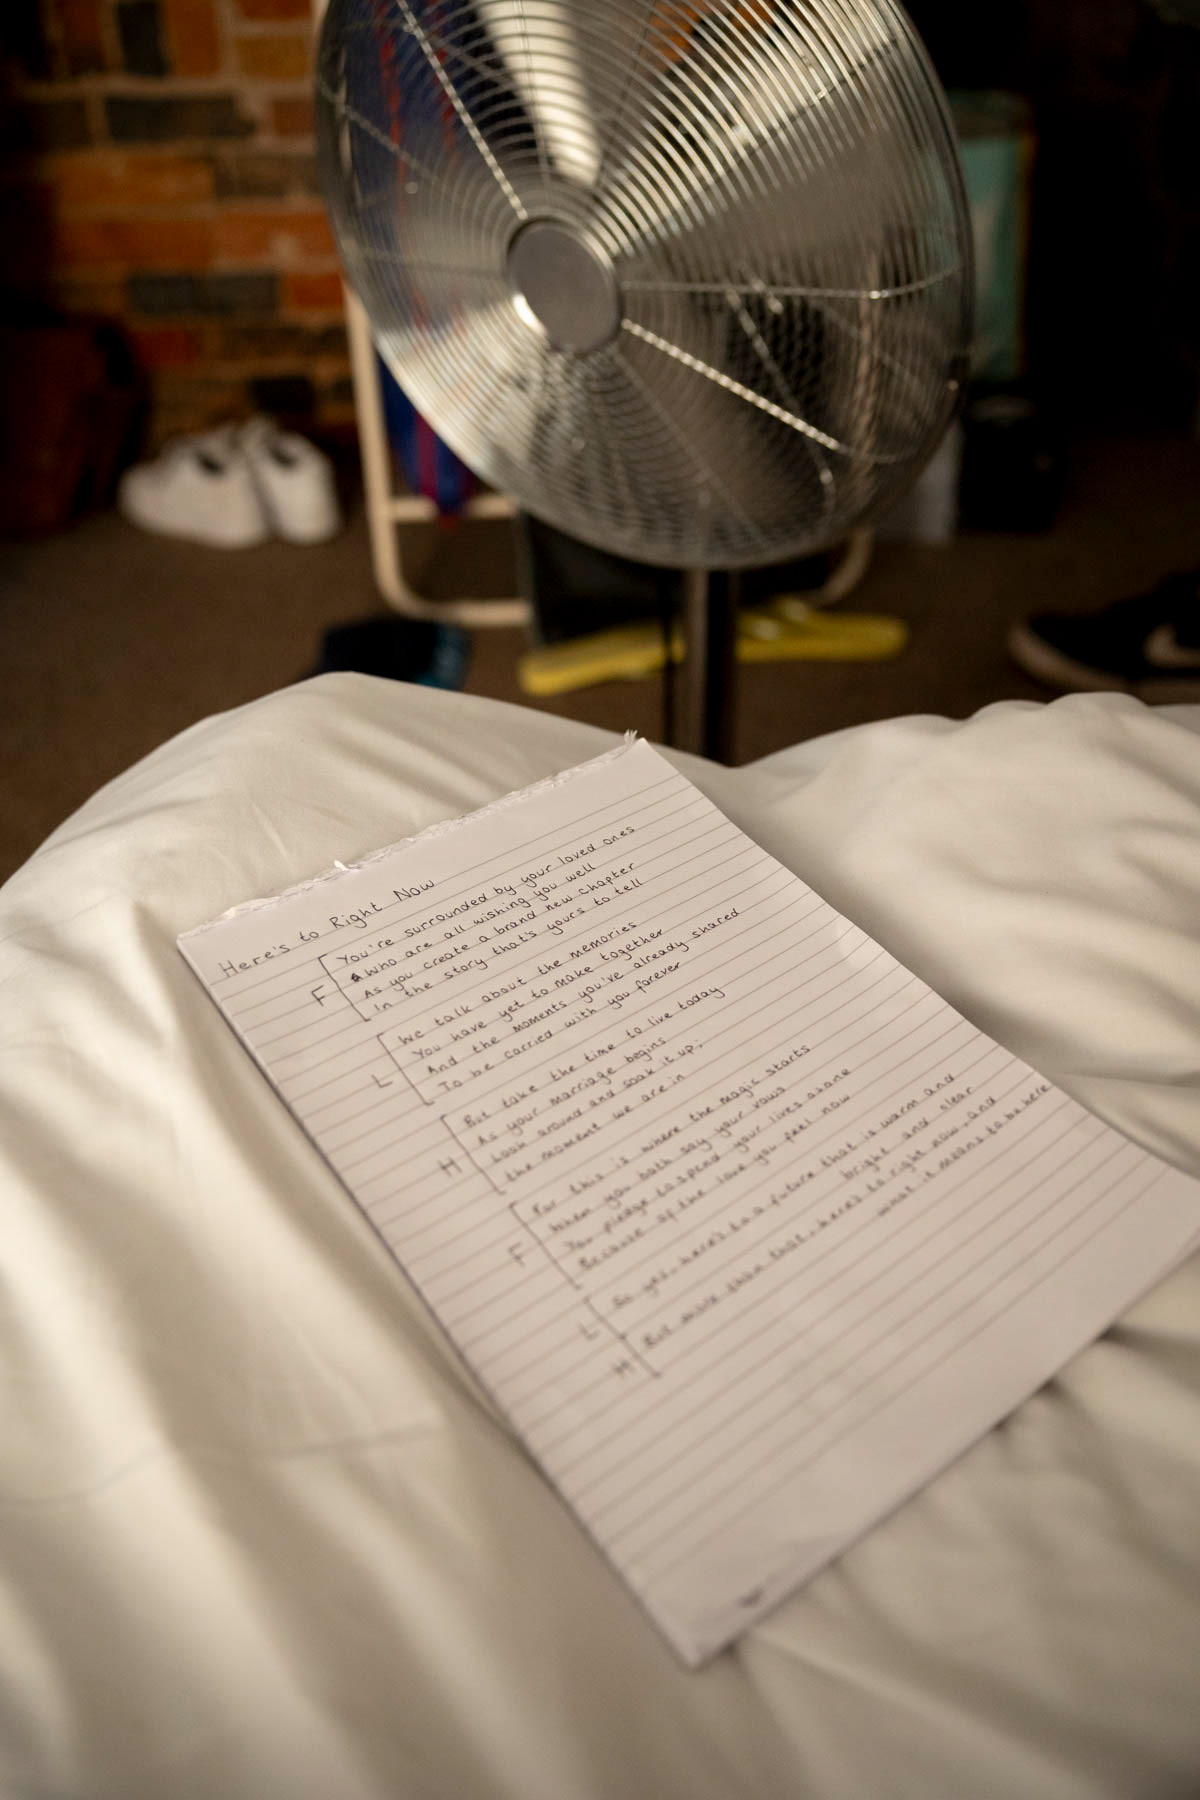 Here's to Right Now
You're surrounded by your loved ones
Who are all wishing you well
As you create a brand new chapter
In the story that's yours to tell
F
We talk about the memories
You have yet to make together
And the moments you've already shared
To be carried with you forever
L
But take the time to live today
As your marriage begins
Look around and soak it up;
the moment we are in
H
For this is where the magic starts
When you both say your vows
You pledge to spend your lives as one
Because of the love you feel now
F
So yes, here's to a future that is warm and
bright and clear
L
But more than that, here's to right now, and
what it means to be here
H